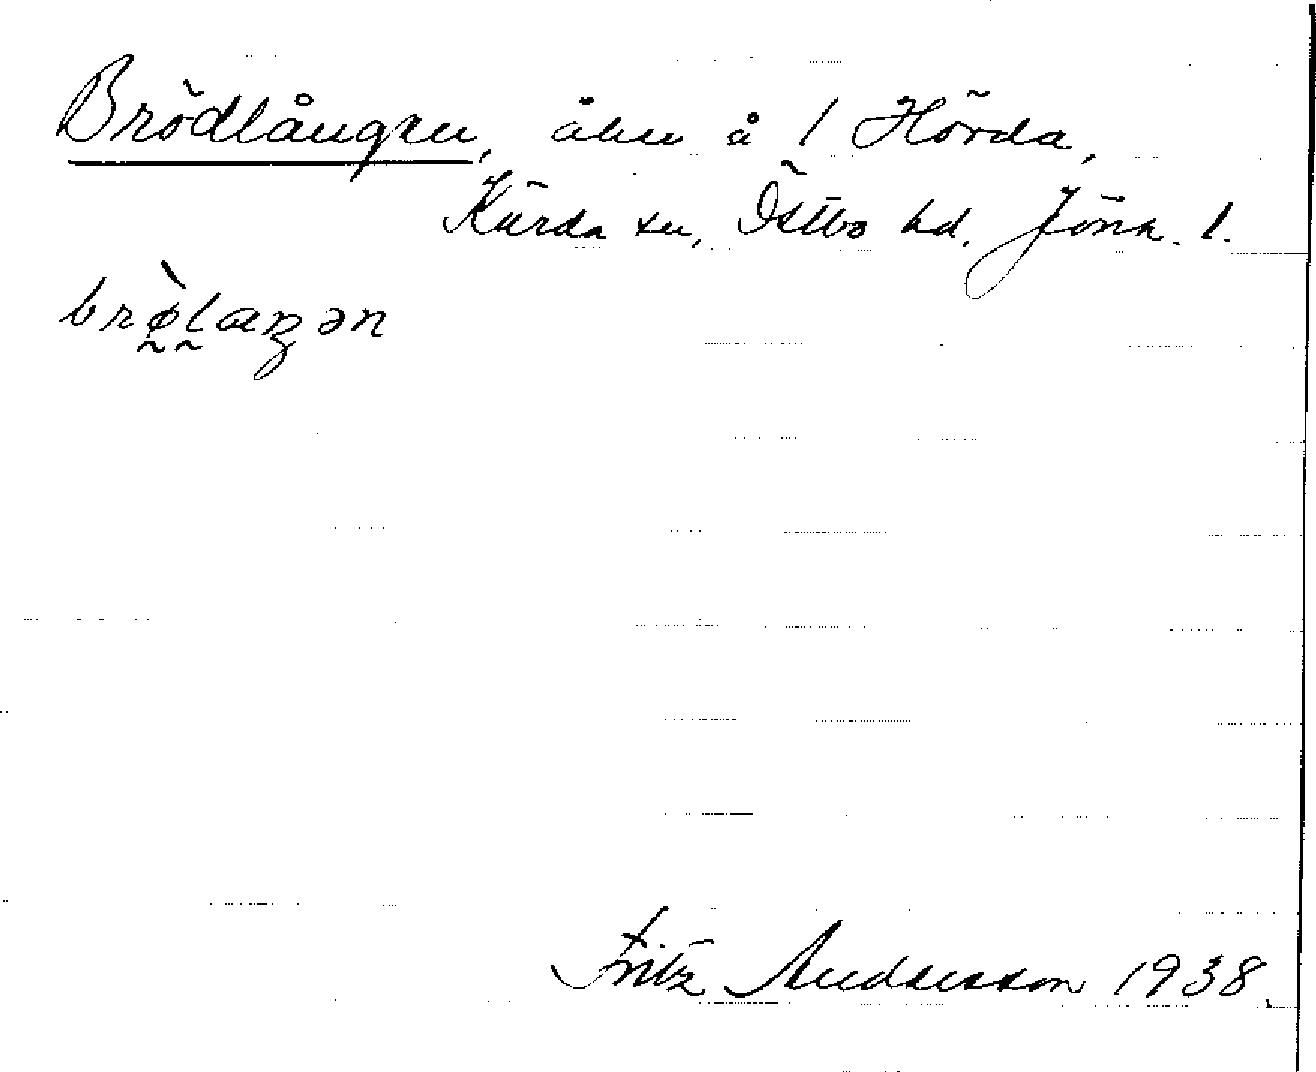 Brödlången, åker å 1 Hörda,
Kärda sn, Östbo hd. Jönk. l.
brø̀laŋən
Fritz Andersson 1938.